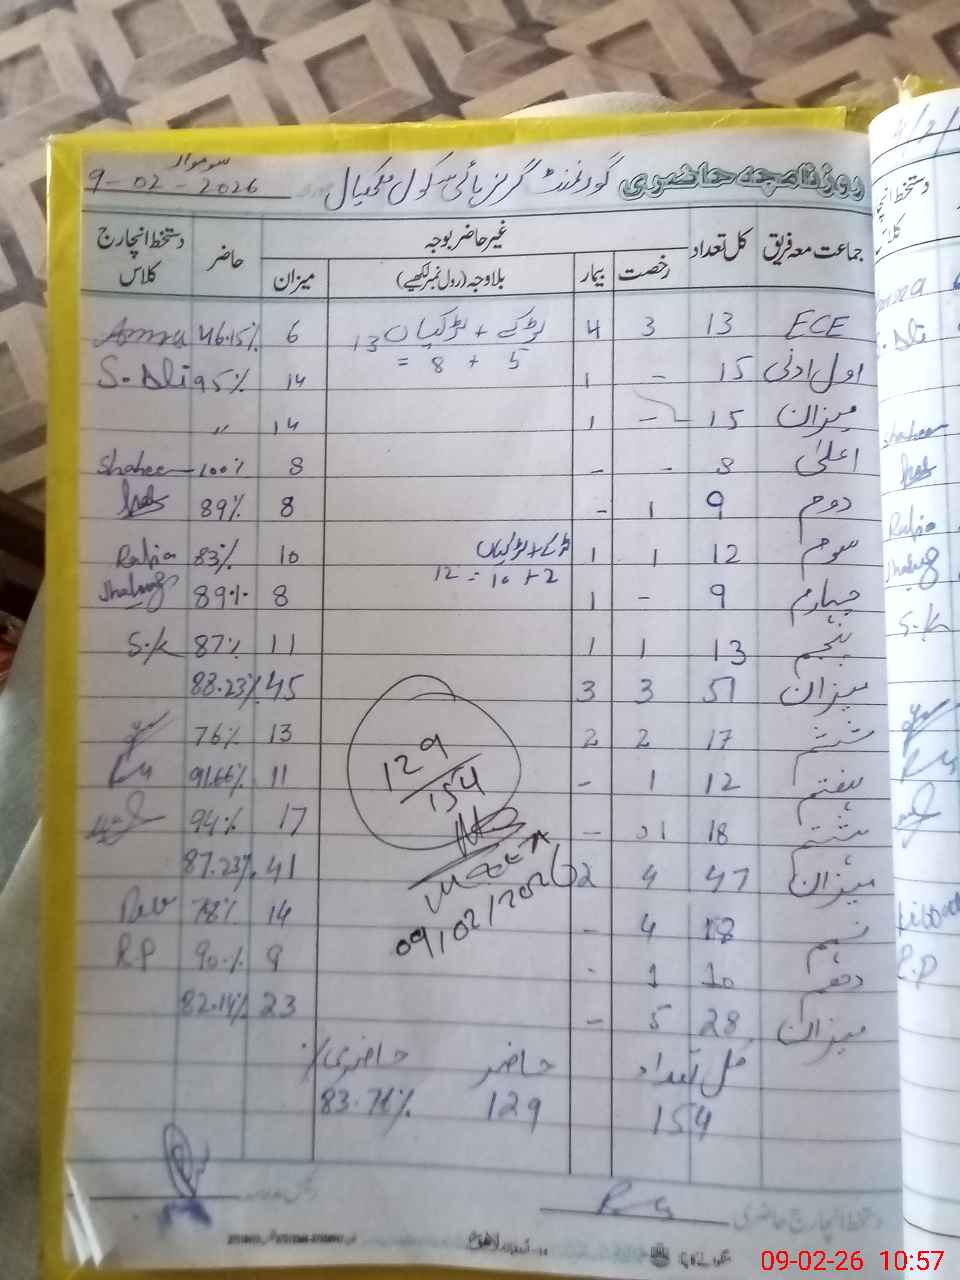 سوموار
روزنامچہ حاضری گورنمنٹ گرلز ہائی سکول ملکھیال 9-02-2026
جماعت معہ فریق کل تعداد غیر حاضر بوجہ حاضر دستخط انچارج کلاس
رخصت بیمار بلاوجہ (رول نمبر لکھیے) میزان
ECE 13 3 4 لڑکے + لڑکیاں 13 6 46.15% Amna
5 + 8 =
اول ادنیٰ 15 - 1 14 95% S. Ali
میزان 15 - 1 14 "
اعلیٰ 8 - - 8 100% Shaheen
دوم 9 1 - 8 89%
سوم 12 1 1 لڑکے + لڑکیاں 10 83% Rabia
2 + 10 = 12
چہارم 9 - 1 8 89%
پنجم 13 1 1 11 87% S.K
میزان 51 3 3 45 88.23%
ششم 17 2 2 13 76%
ہفتم 12 1 - 11 91.66%
ہشتم 18 1 - 17 94%
میزان 47 4 2 41 87.23%
نہم 18 4 - 14 78%
دہم 10 1 - 9 90% R.P
میزان 28 5 - 23 82.14%
129/154
09/02/2026
کل تعداد حاضر حاضری %
154 129 83.76%
دستخط انچارج حاضری
09-02-26 10:57